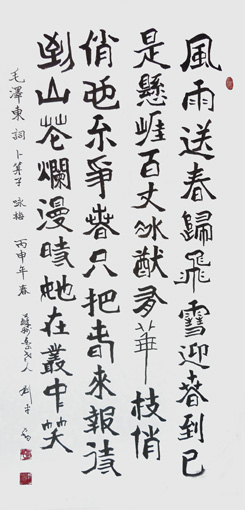 風雨送春歸飛雪迎春到已
是懸崖百丈冰猷有華枝俏
俏也不爭春只把春來報待
到山花爛漫時她在叢中笑
毛澤東 詞 卜算子 咏梅 丙申年春
人